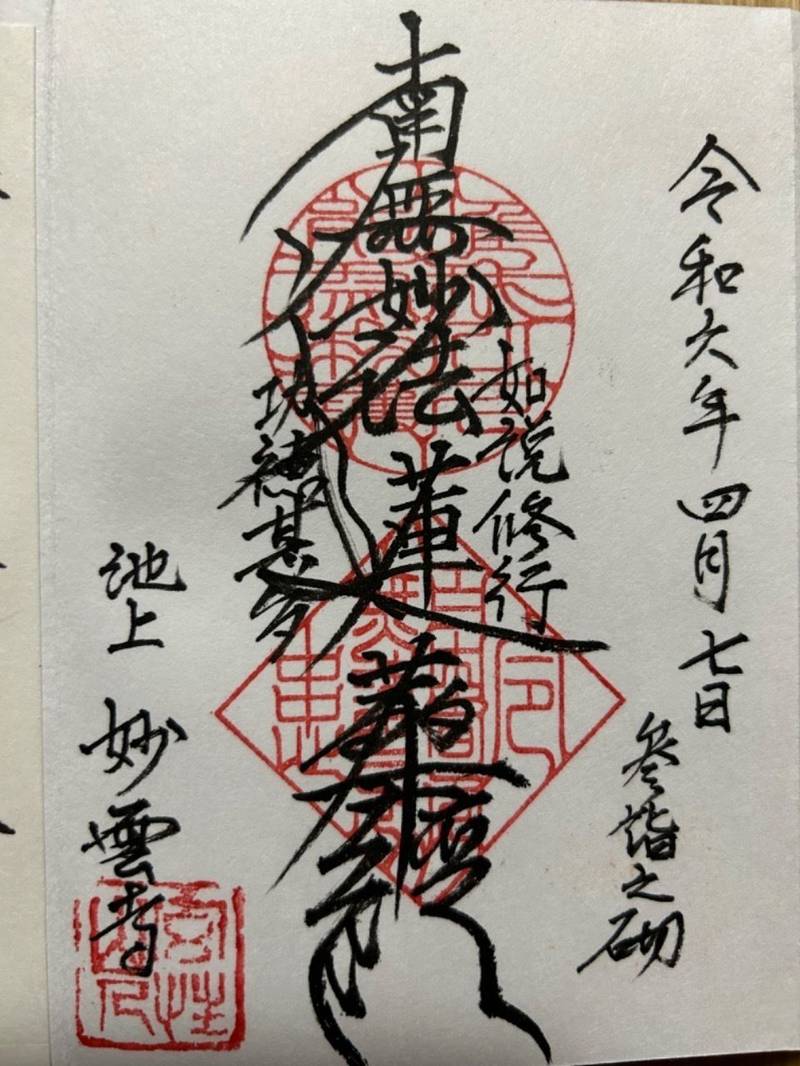 令和六年四月七日
参詣之砌
如説修行
南無妙法蓮華経
功徳甚多
池上 妙雲寺